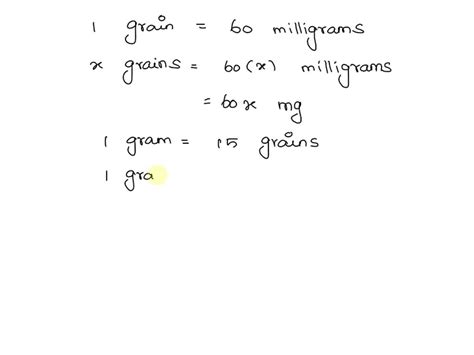 1 grain = 60 milligrams
x grains = 60(x) milligrams
= 60x mg
1 gram = 15 grains
1 gra